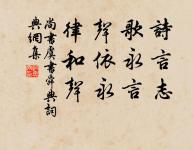 詩言志
歌永言
聲依永
律和聲
尚書虞書舜典詞
典網集